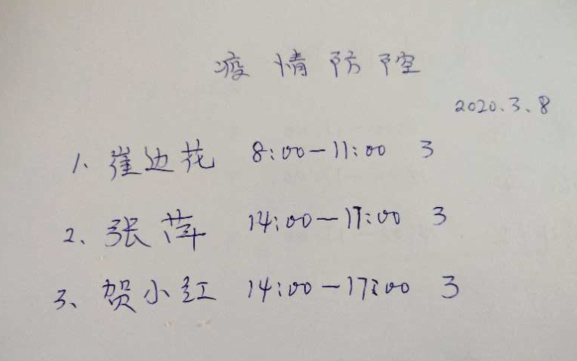 疫情防控
2020.3.8
1、崔边花 8:00-11:00 3
2、张萍 14:00-17:00 3
3、贺小红 14:00-17:00 3